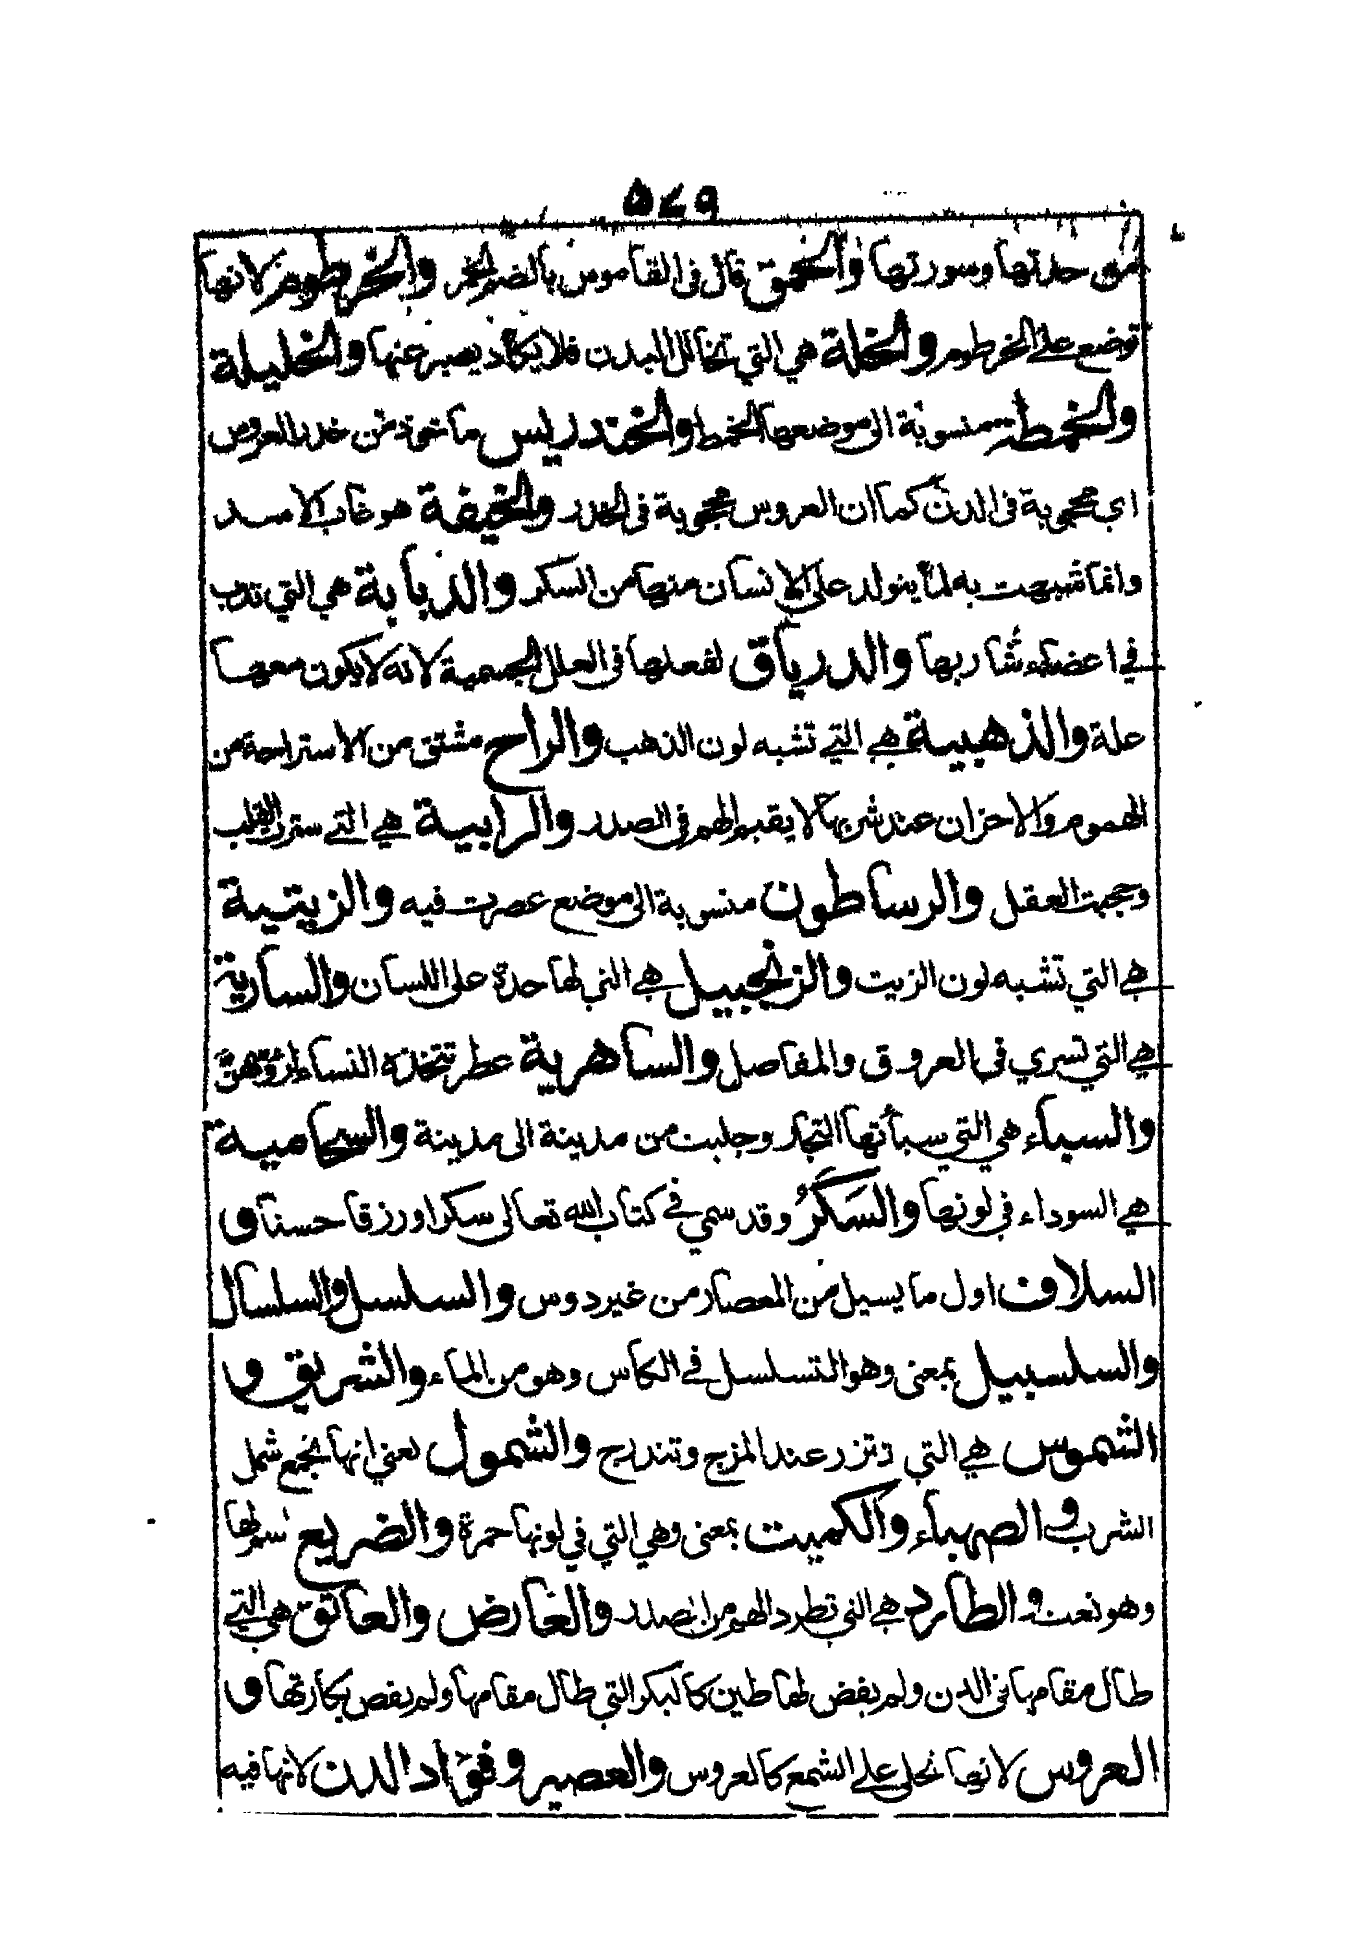 ٥٤٩
من حدتها وسورتها والخمق قال في القاموس بالضم الخمر والخرطوم لانها
توضع على الخرطوم والخلة هي التي تخالل البدن فلا يكاد يصبر عنها والخليلة
والخمطة منسوبة الى موضعها الخمط والخندريس ماخوذ من خدر العروس
اي محجوبة في الدن كما ان العروس محجوبة في الخدر والخيفة هو غاب الاسد
وانما شبهت به لما يتولد على الانسان منها من السكر والدبابة هي التي تدب
في اعضاء شاربها والدرياق لفعلها في العلل الجسمية لانه لا يكون معها
علة والذهبية هي التي تشبه لون الذهب والراح مشتق من الاستراحة من
الهموم والاحزان عند شربها لا يقيم الهم في الصدر والرابية هي التي سترت القلب
وحجبت العقل والرساطون منسوبة الى موضع عصرت فيه والزيتية
هي التي تشبه لون الزيت والزنجبيل هي التي لها حدة على اللسان والسارية
هي التي تسري في العروق والمفاصل والساهرية عطر تتخذه النساء لرؤوهن
والسباء هي التي سبأتها التجار وجلبت من مدينة الى مدينة والسحامية
هي السوداء في لونها والسكر وقد سمي في كتاب الله تعالى سكرا ورزقا حسنا و
السلاف اول ما يسيل من المعصار من غير دوس والسلسل والسلسال
والسلسبيل بمعنى وهو التسلسل في الكاس وهو من الماء والشريق و
الشموس هي التي تنزر عند المزج وتندرج والشمول لعني انها تجمع شمل
الشرب والصهباء والكميت بمعنى وهي التي في لونها حمرة والضريع اسم لها
وهو نعت والطارد هي التي تطرد الهم من الصدر والعارض والعاتق هي التي
طال مقامها في الدن ولم يفض لها طين كالبكر التي طال مقامها ولم يفض بكارتها و
العروس لانها تجلى على الشمع كالعروس والعصير وفؤاد الدن لانها فيه